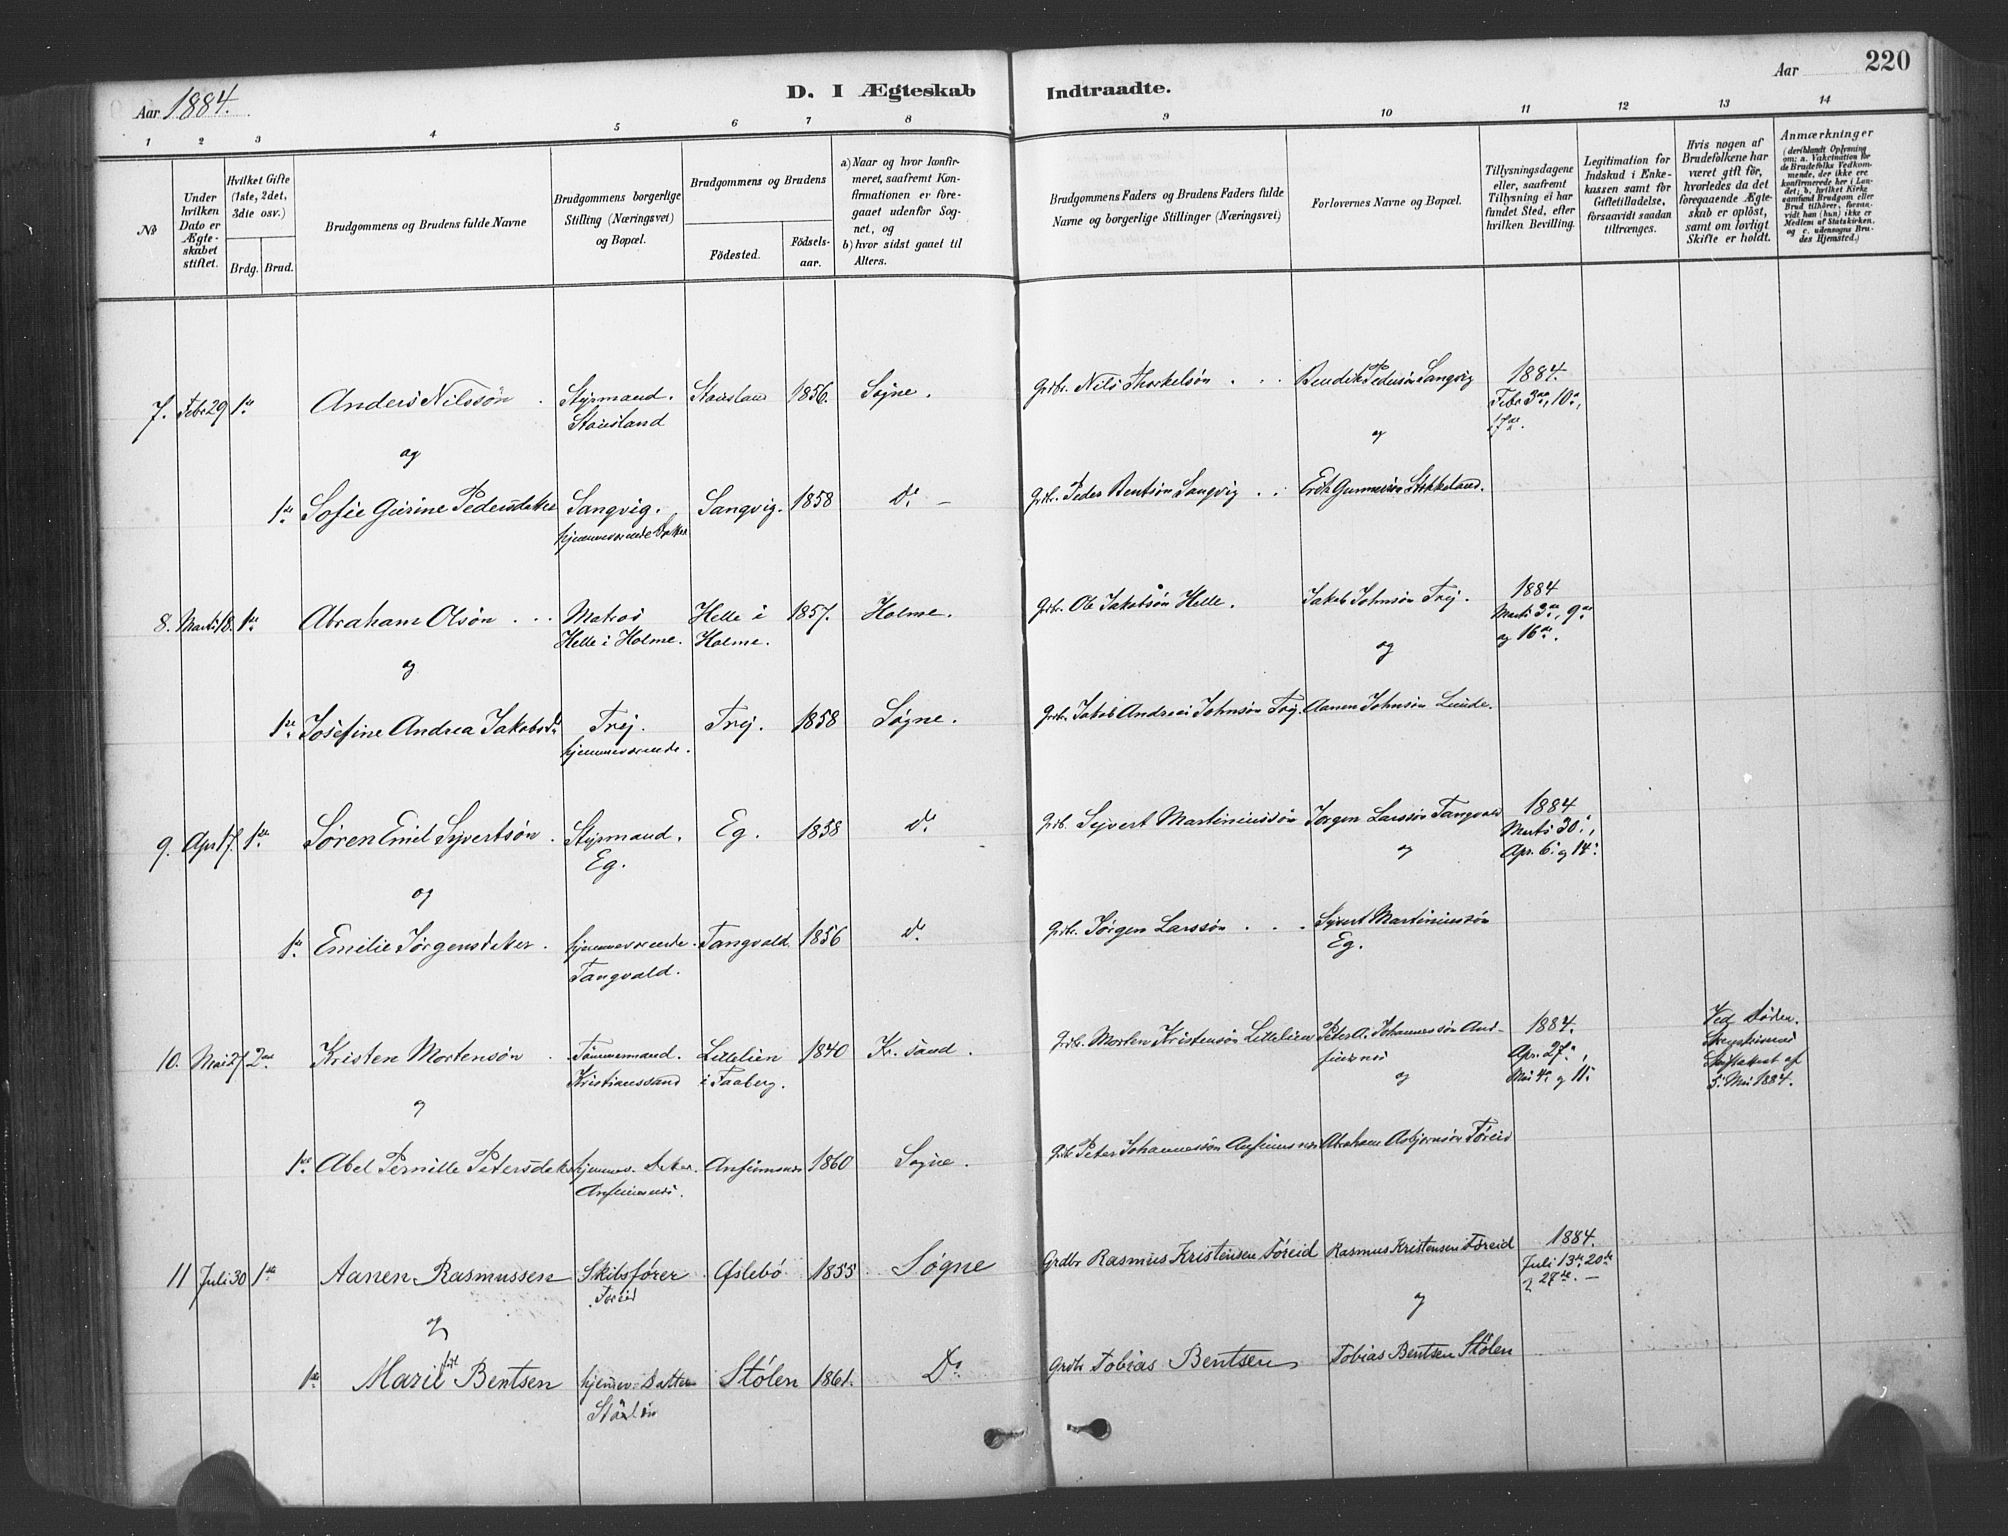 Aar 1884.
D. I Ægteskab Indtraadte.
Aar
220
1 2 3 4 5 6 7 8 9 10 11 12 13 14
No
Under hvilken Dato er Ægteskabet stiftet.
Hvilket Gifte (1ste, 2det, 3die osv.)
Brdg. Brud.
Brudgommens og Brudens fulde Navne
Brudgommens borgerlige Stilling (Næringsvei) og Bopæl.
Brudgommens og Brudens
Födested.
Födselsaar.
a) Naar og hvor konfirmeret, saafremt Konfirmationen er foregaaet udenfor Sognet, og
b) hvor sidst gaaet til Alters.
Brudgommens Faders og Brudens Faders fulde Navne og borgerlige Stillinger (Næringsvei)
Forlovernes Navne og Bopæl.
Tillysningsdagene eller, saafremt Tillysning ei har fundet Sted, efter hvilken Bevilling.
Legitimation for Indskud i Enkekassen samt for Giftetilladelse, forsaavidt saadan tiltrænges.
Hvis nogen af Brudefolkene har været gift för, hvorledes da det foregaaende Ægteskab er oplöst, samt om lovligt Skifte er holdt.
Anmærkninger
(deriblandt Oplysning om: a. Vakcination for de Brudefolks Vedkommende, der ikke ere konfirmerede her i Landet; b. hvilket Kirkesamfund Brudgom eller Brud tilhörer, forsaavidt han (hun) ikke er Medlem af Statskirken, og c. udensogns Brudes Hjemsted.)
7. Febr 29 1ste Anders Nilssön . Styrmand. Stausland 1856. Søgne. Grdbr. Nils Thorkelsön . . . Bendik Pedersön Langvig 1884.
Stausland Febr 3die, 10de,
17de.
og og
1ste Sofie Gurine Pedersdatter Langvig. Langvig. 1858 Do — Grdbr. Peder Bentsön Langvig . . Erik Gunnersön Stokkeland.
hjemmeværende Datter
8. Marts 18. 1ste Abraham Olsön . . . Matros Helle i 1857. Holme. Grdbr. Ole Jakobsön Helle. Jakob Johnsön Trej. 1884
Helle i Holme. Holme. Marts 2den, 9de
og 16de.
og og
1ste Josefine Andrea Jakobsdr Trej. Trej. 1858 Søgne. Grdbr. Jakob Andreas Johnsön Trej. Aanen Johnsön Lunde.
hjemmeværende.
9. Apr 17. 1ste Sören Emil Syvertsön . Styrmand. Eg. 1858 Do Grdb. Syvert Martiniussön Jørgen Larssön Tangvald 1884
Eg. Marts 30,
og og Apr. 6 og 14.
1ste Emilie Jörgensdatter . hjemmeværende. Tangvald 1856 Do Grdbr. Jörgen Larssön . . . Syvert Martiniussön
Tangvald. Eg.
10. Mai 27. 2den Kristen Mortensön . Tømmermand. Lillelien 1840 Kr.sand. Grdbr. Morten Kristensön Lillelien Peter A. Johannessön An- 1884. Ved Døden.
Kristianssand i Faaberg. finsnæs Apr. 27, Skifteattest af
og og Mai 4 og 11. 5. Mai 1884.
1ste Abel Pernille Petersdatter hjemmev. Datter. Anfinsnæs 1860 Søgne. Grdb Peter Johannessön Anfinsnæs Abraham Asbjørnsön Töreid
Anfinsnæs.
11 Juli 30 1ste Aanen Rasmussen Skibsfører Øslebö 1855 Søgne Grdbr Rasmus Kristensen Töreid Rasmus Kristensen Töreid 1884.
Toreid Juli 13de 20de
og og 27de. —
1ste Marie Bentsen hjemmev. Datter Stølen 1861. Do Grdbr Tobias Bentsen Tobias Bentsen Stølen
Stølen